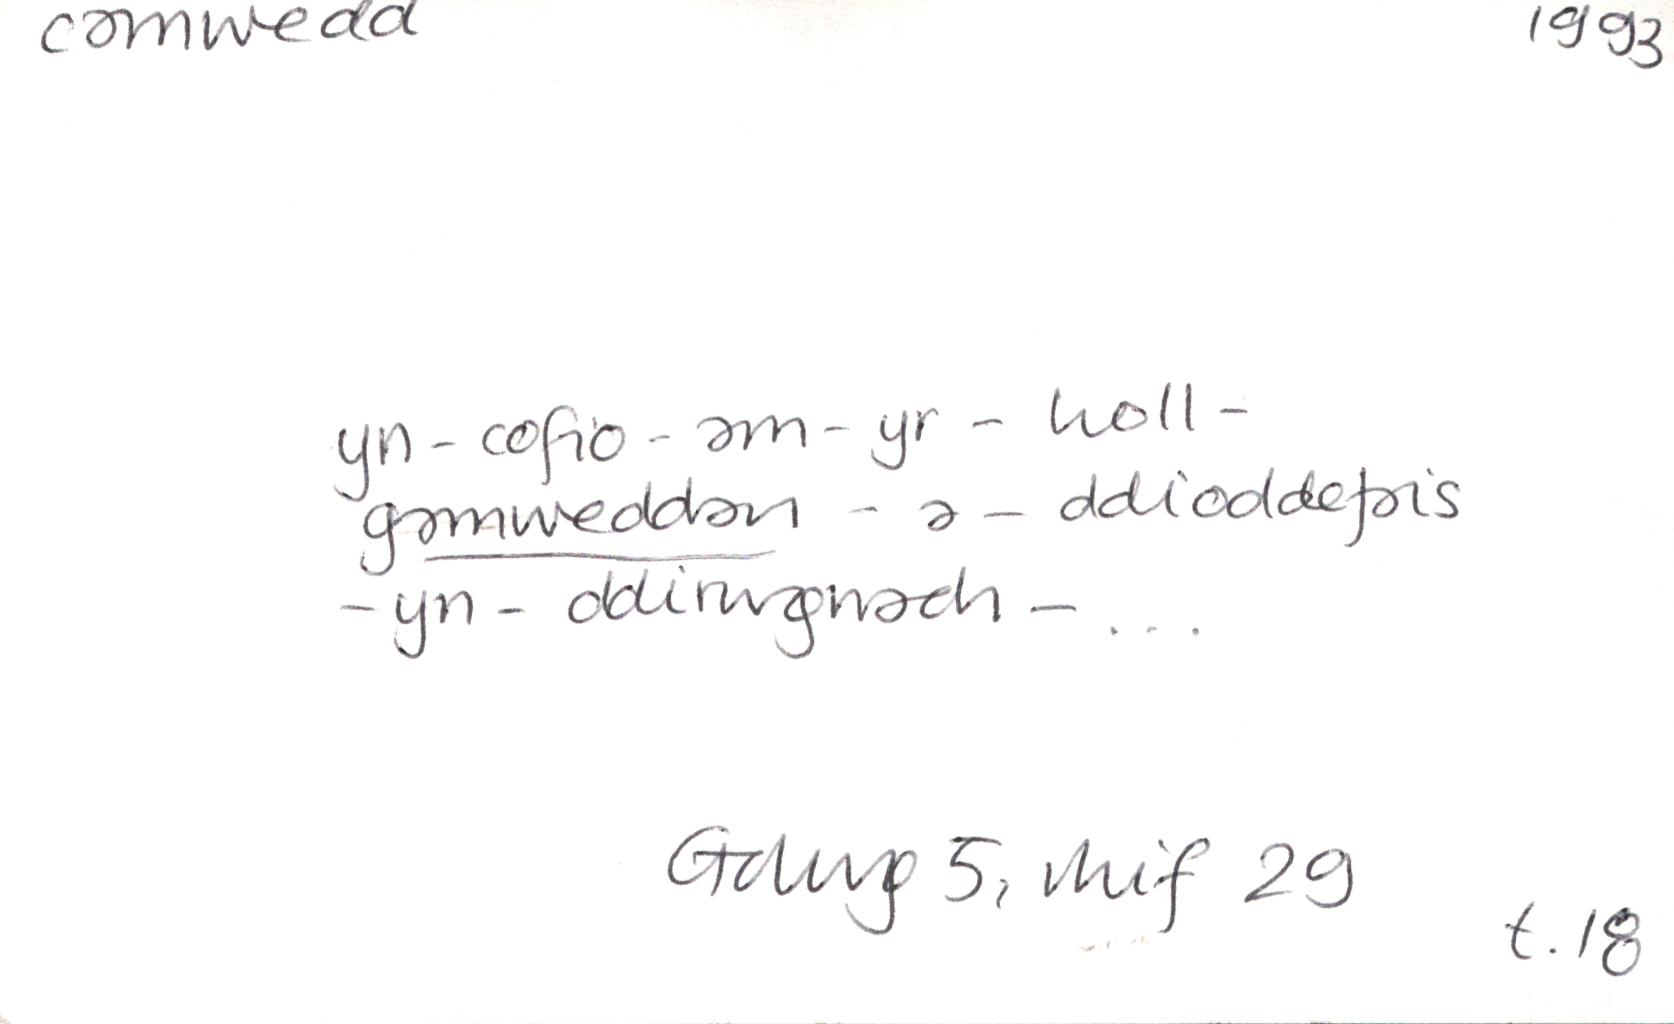 camwedd 1993
yn-cofio-am-yr-holl-
gamweddau-a-ddioddefais
-yn-ddirwgnach-...
Golwg 5, rhif 29
t.18